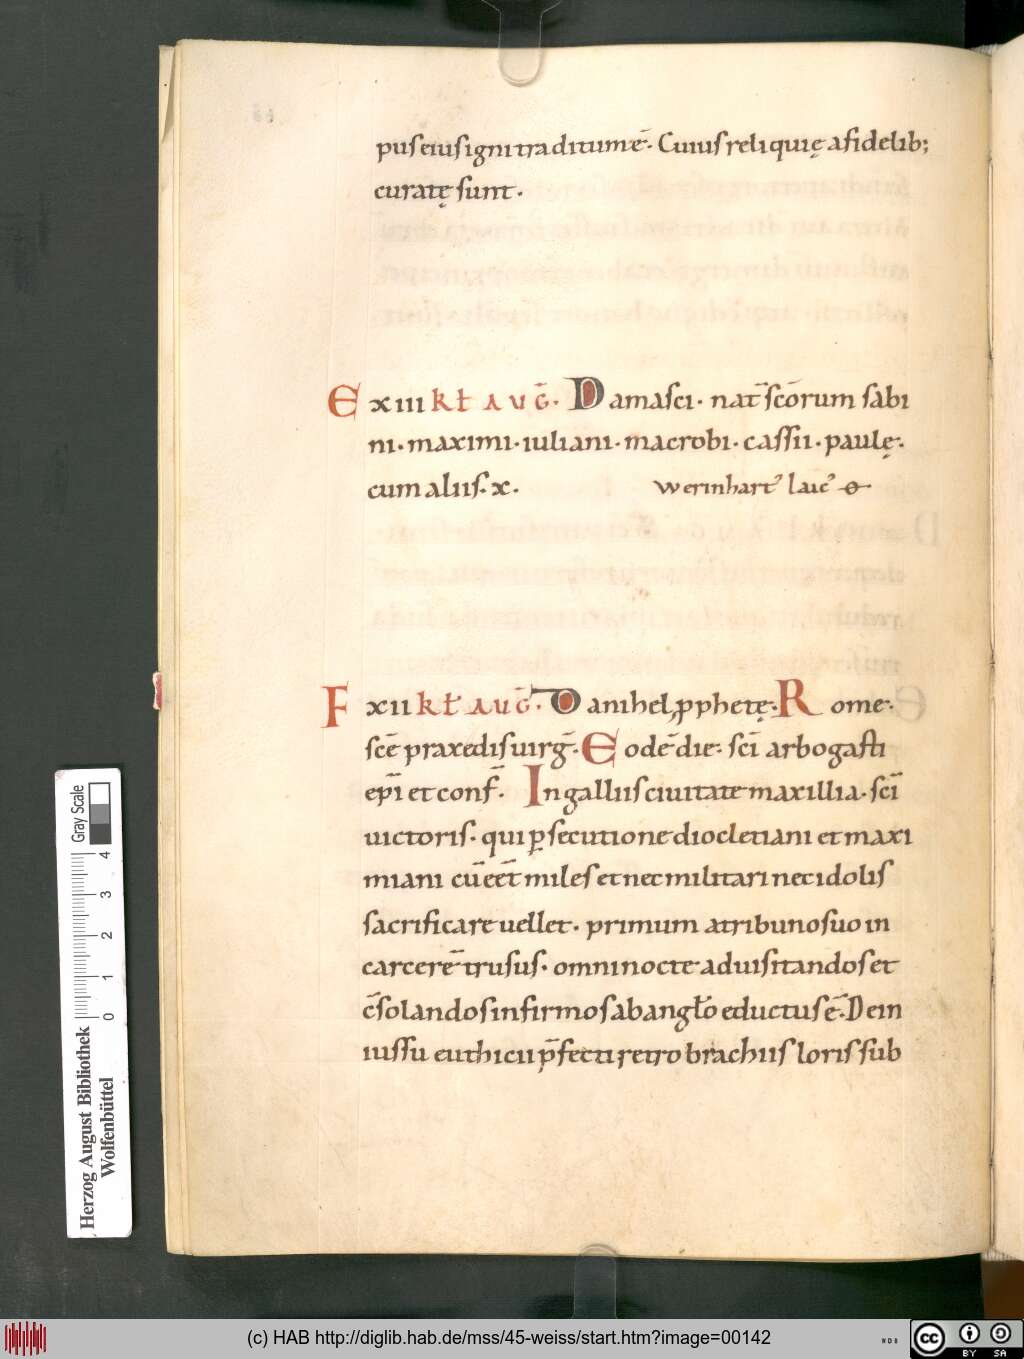 pus eius igni traditum ē. Cuius reliquię a fidelib;
curatę sunt.
E xiii kł aug̅. Damasci. nat̅ sc̅orum sabi
ni. maximi. iuliani. macrobi. cassii. paulę.
cum aliis. x. Werinhart᾿ laic᾿ ɵ
F xii kł aug̅. Danihel, ꝓphetę. Rome.
sc̅e praxedis uirg̅. Eode̅ die. sc̅i arbogasti
ep̅i et conf̅. In galliis ciuitate maxillia. sc̅i
uictoris. qui ꝑsecutione diocletiani et maxi
miani cu̅ ee̅t miles et nec militari nec idolis
sacrificare uellet. primum a tribuno suo in
carcere̅ trusus. omni nocte ad uisitandos et
c̅solandos infirmos ab angło eductus ē. Dein
iussu euthicii p̅fecti retro brachiis loris sub
Gray Scale
0 1 2 3 4
Herzog August Bibliothek
Wolfenbüttel
(c) HAB http://diglib.hab.de/mss/45-weiss/start.htm?image=00142
WDB
cc BY SA